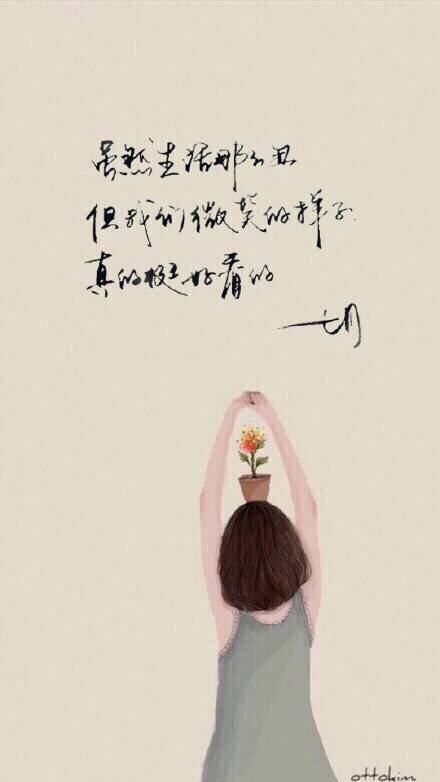 虽然生活那么丑
但我们微笑的样子
真的挺好看的
一七月
ottokim.